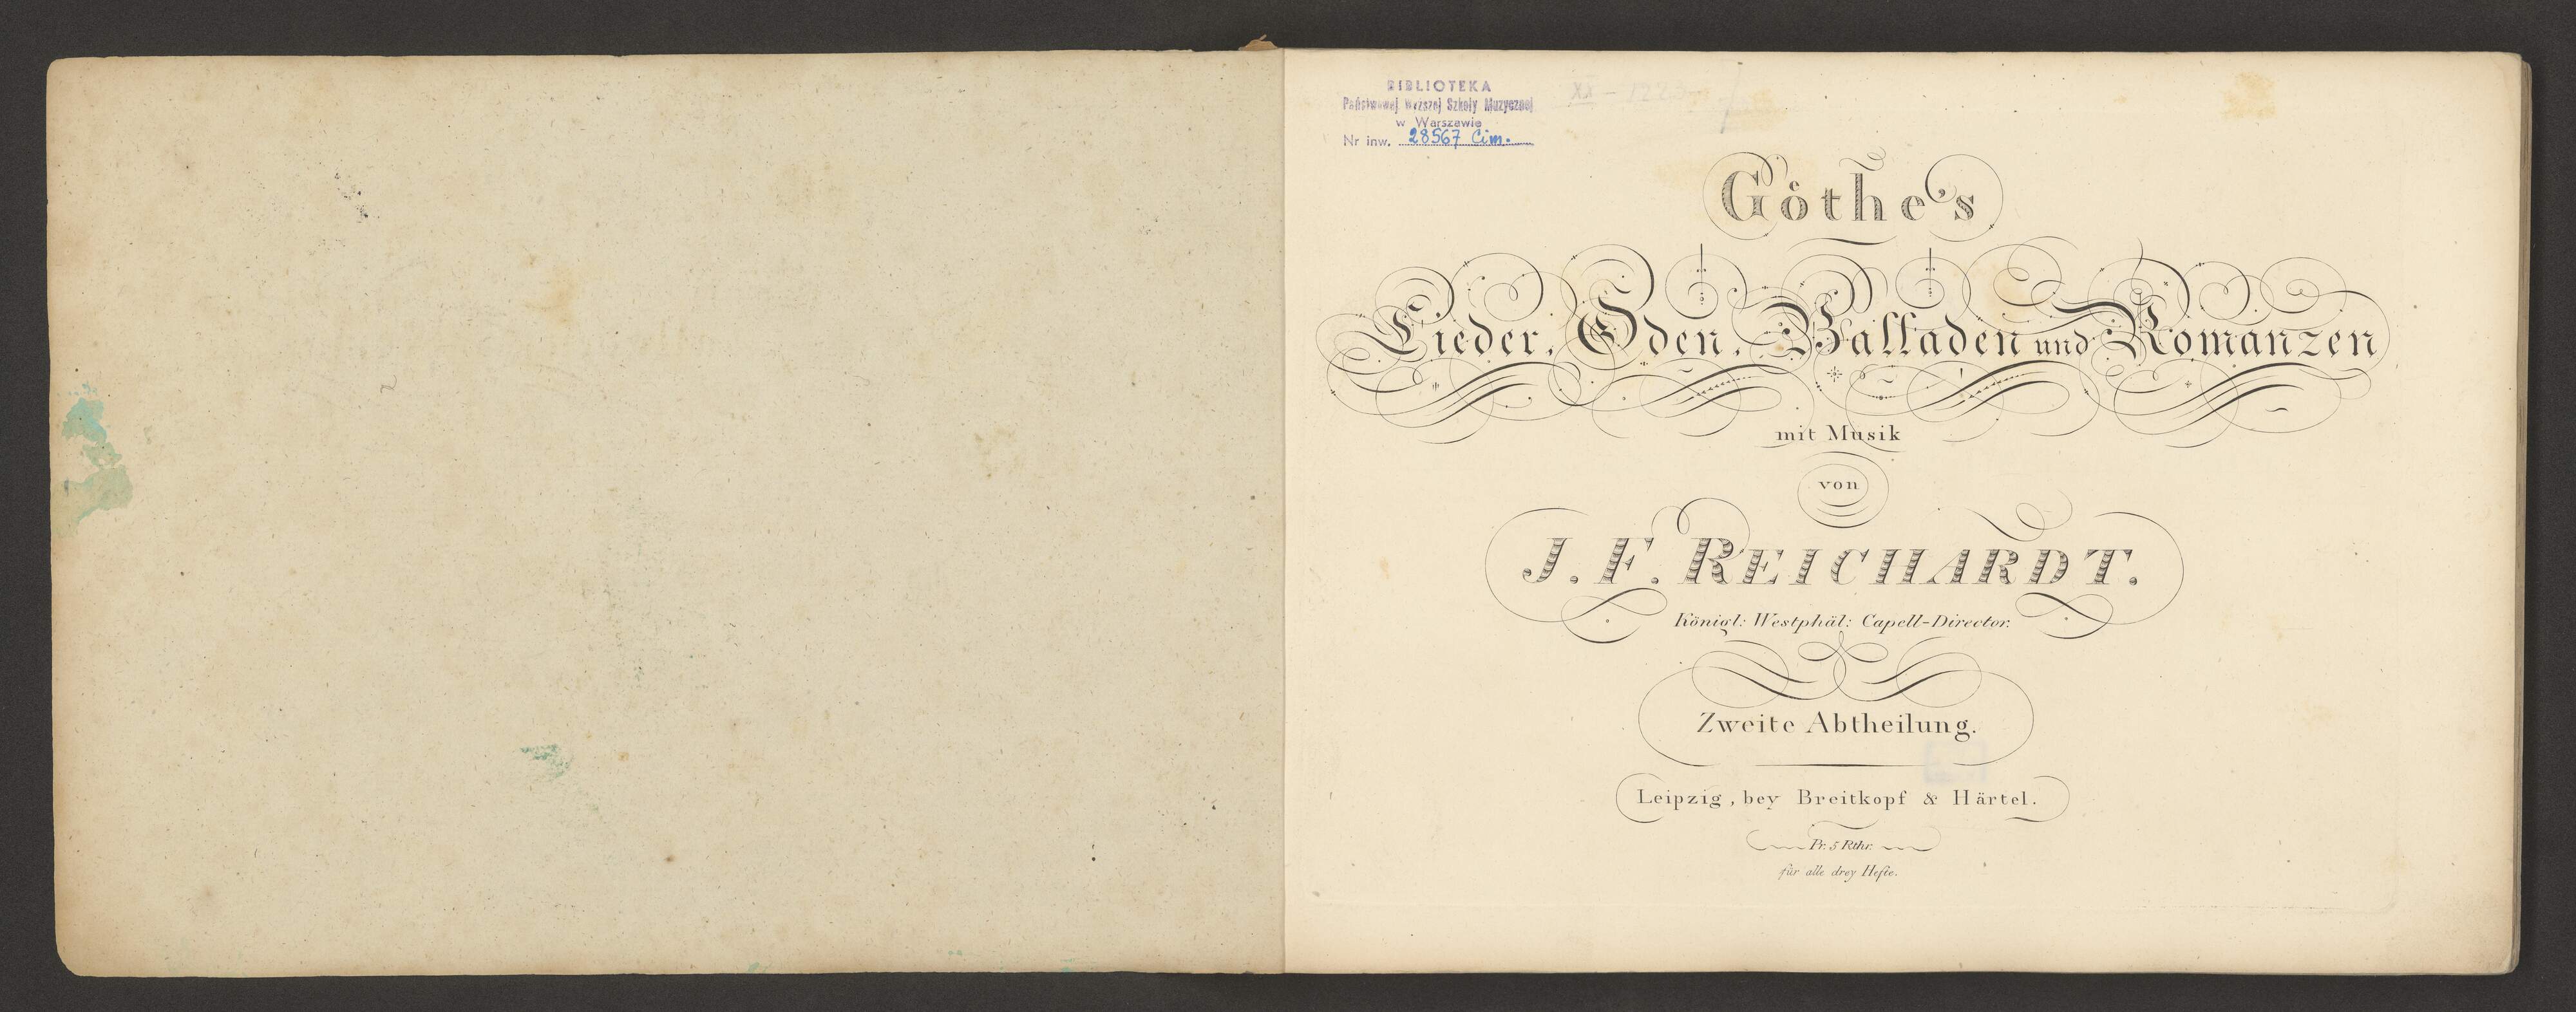 BIBLIOTEKA
Państwowej Wyższej Szkoły Muzycznej
w Warszawie
Nr inw. 28567 Cim.
XX - 122
Göthe's
Lieder, Oden, Balladen und Romanzen
mit Musik
von
J. F. REICHARDT.
Königl: Westphäl: Capell-Director.
Zweite Abtheilung.
Leipzig, bey Breitkopf & Härtel.
Pr. 5 Rthr.
für alle drey Hefte.